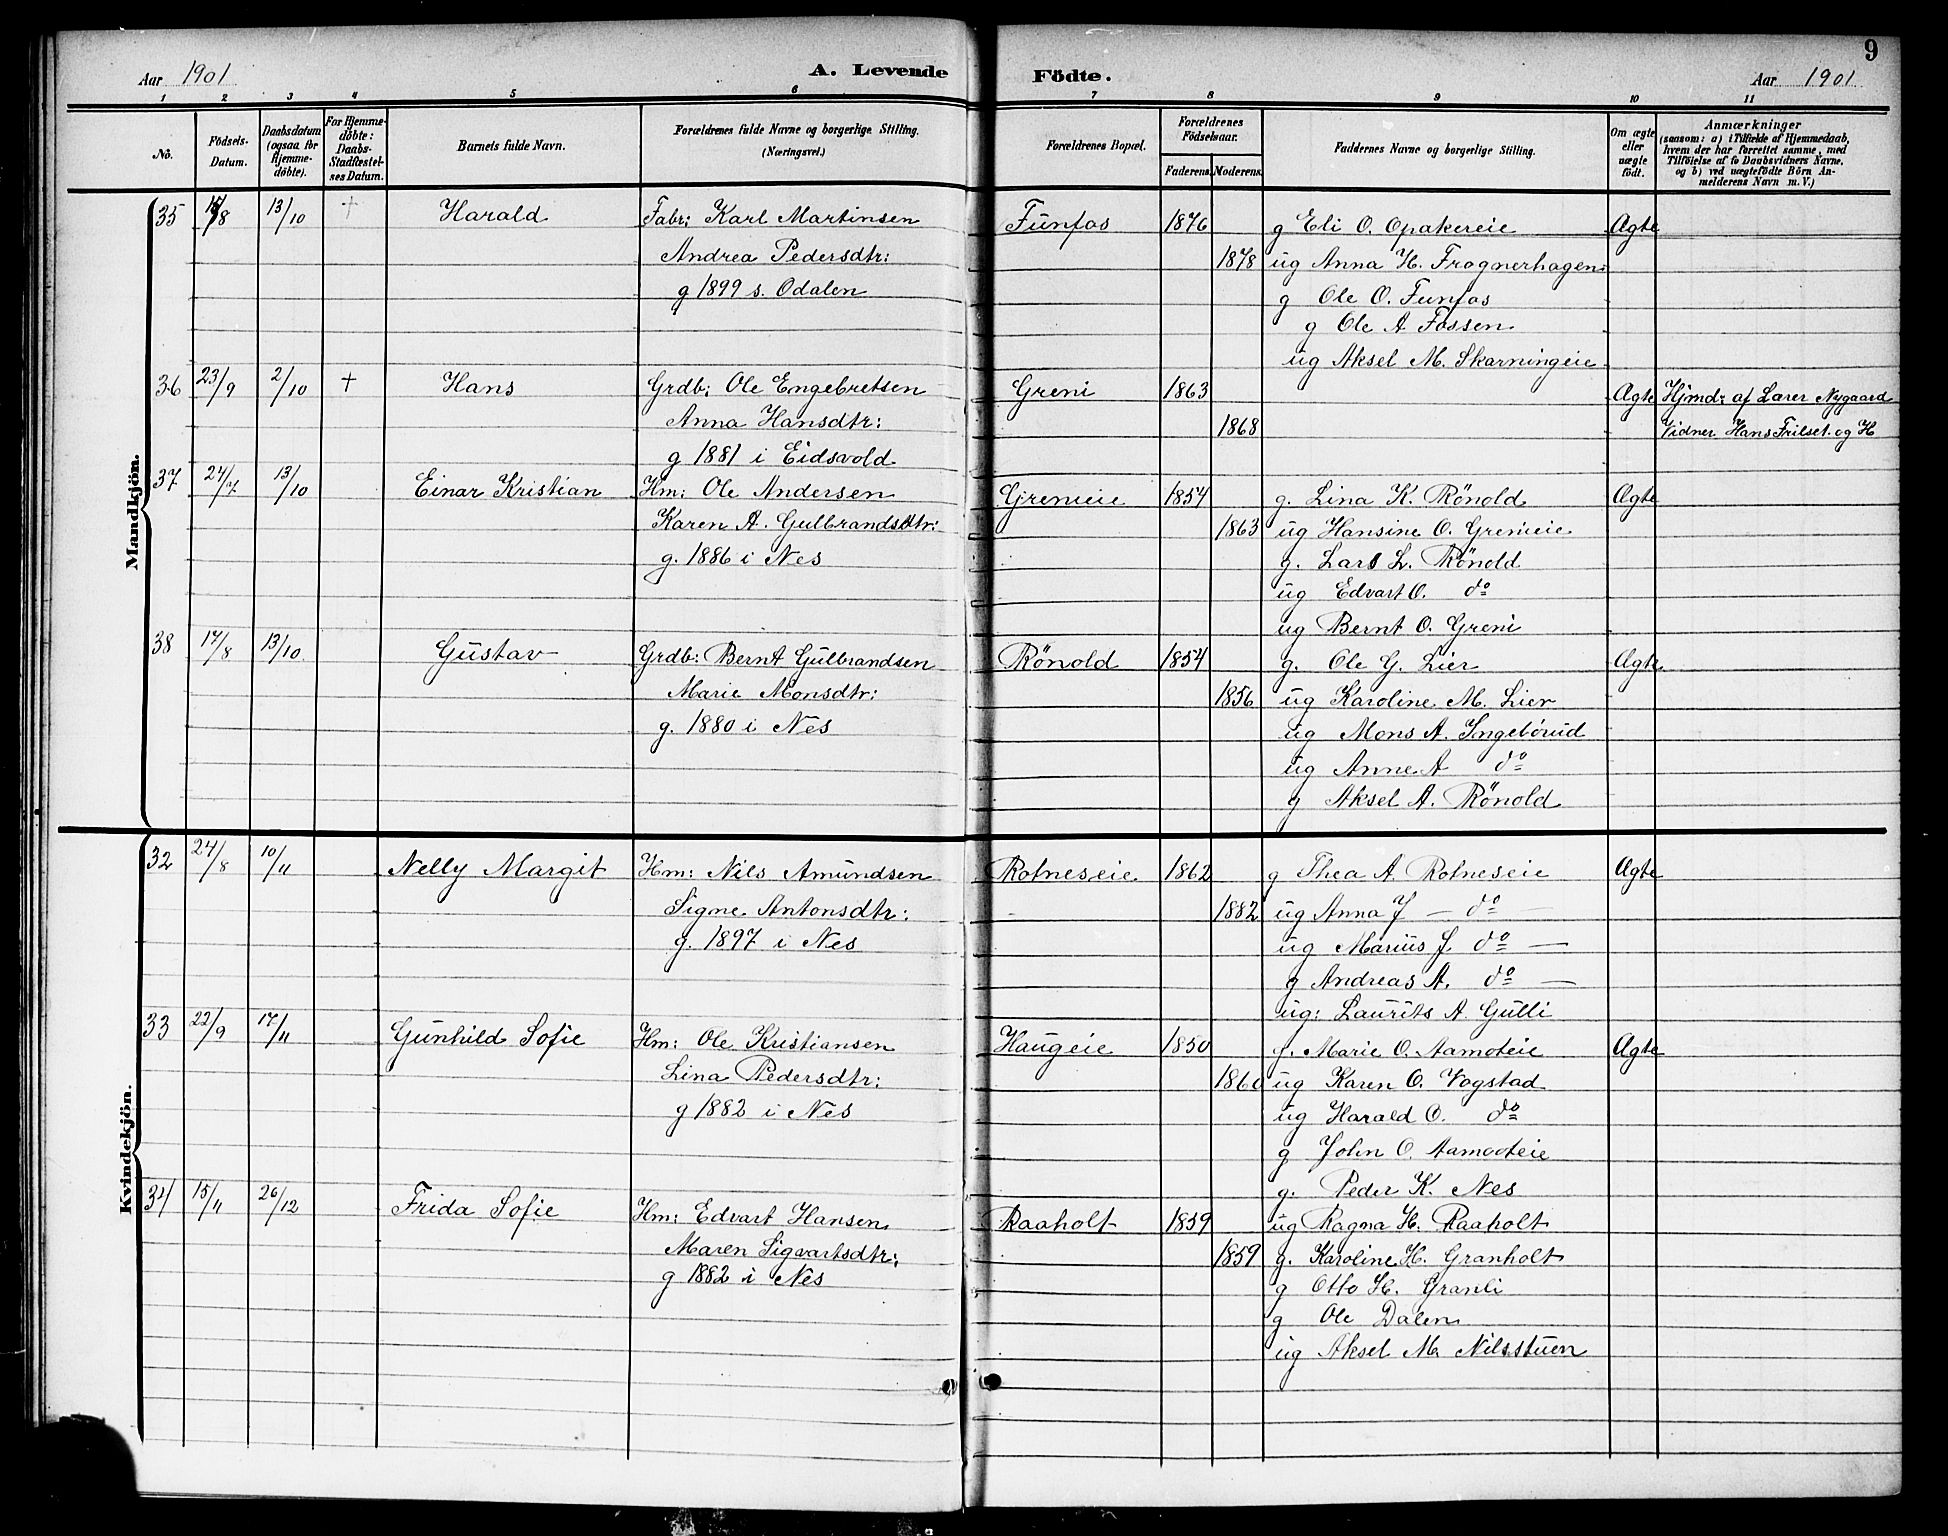 9
Aar 1901 A. Levende Födte. Aar 1901
1 2 3 4 5 6 7 8 9 10 11
No.
Födsels-Datum.
Daabsdatum (ogsaa for Hjemme-döbte).
For Hjemme-döbte: Daabs-Stadfæstel-ses Datum.
Barnets fulde Navn.
Forældrenes fulde Navne og borgerlige Stilling. (Næringsvei.)
Forældrenes Bopæl.
Forældrenes Födselsaar.
Faderens. Moderens.
Faddernes Navne og borgerlige Stilling.
Om ægte eller uægte født.
Anmærkninger
(saasom: a) i Tilfælde af Hjemmedaab,
hvem der har forrettet samme, med
Tilföielse af to Daabsvidners Navne,
og b) ved uægtefödte Börn An-
melderens Navn m. V.)
Mandkjön.
35 /8 13/10 + Harald Fabr: Karl Martinsen Funfos 1876 g Eli O. Opakereie Ægte
Andrea Pedersdtr: 1878 ug Anna H. Frognerhagen
g 1899 s. Odalen g Ole O. Funfos
g Ole A Fossen
ug Aksel M. Skarningeie
36 23/9 2/10 + Hans Grdb: Ole Engebretsen Greni 1863 Ægte Hjmd: af Lærer Nygaard
Anna Hansdtr: 1868 Vidner Hans Frilset og H
g 1881 i Eidsvold
37 24/7 13/10 Einar Kristian Hm: Ole Andersen Grenieie 1854 g. Lina K. Rönold Ægte
Karen A. Gulbrandsdtr: 1863 ug Hansine O. Grenieie
g. 1886 i Nes g. Lars L. Rönold
ug Edvart O. do
ug Bernt O. Greni
38 17/8 13/10 Gustav Grdb: Bernt Gulbrandsen Rönold 1854 g. Ole G. Lier Ægte
Marie Monsdtr: 1856 ug Karoline M. Lier
g. 1880 i Nes ug Mons A. Ingebörud
ug Anne A do
g Aksel A. Rönold
Kvindekjön.
32 24/8 10/11 Nelly Margit Hm: Nils Amundsen Rotneseie 1862 g Thea A. Rotneseie Ægte
Signe Antonsdtr: 1882 ug Anna J — do —
g. 1897 i Nes ug Marius J. do —
g Andreas A. do —
ug: Laurits A. Gulli
33 22/9 17/11 Gunhild Sofie Hm: Ole Kristiansen Haugeie 1850 g. Marie O. Aamoteie Ægte
Lina Pedersdtr: 1860 ug Karen O. Vogstad
g 1882 i Nes ug Harald O. do
g John O. Aamoteie
g. Peder K. Nes
34 15/11 26/12 Frida Sofie Hm: Edvart Hansen Raaholt 1859 ug Ragna H. Raaholt
Maren Sigvartsdtr: 1859 g. Karoline H. Granholt
g 1882 i Nes g Otto H. Granli
g Ole Dalen
ug Aksel M. Nilsstuen